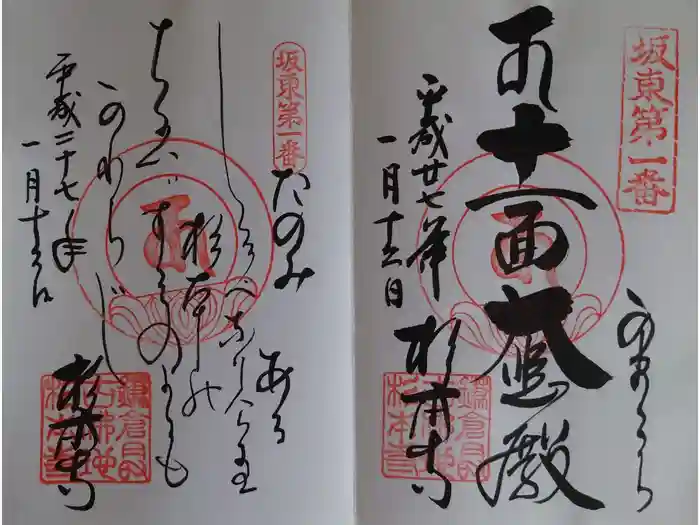 坂東第一番
かまくら
十一面大悲殿
平成廿七年
一月十
杉本寺
鎌倉最
古佛地
杉本寺
坂東第一番
たのみある
しるべなりけり
杉本の
ちかひは
すゑのよにも
かわらじ
平成二十七年
一月十
杉本寺
鎌倉最
古佛地
杉本寺